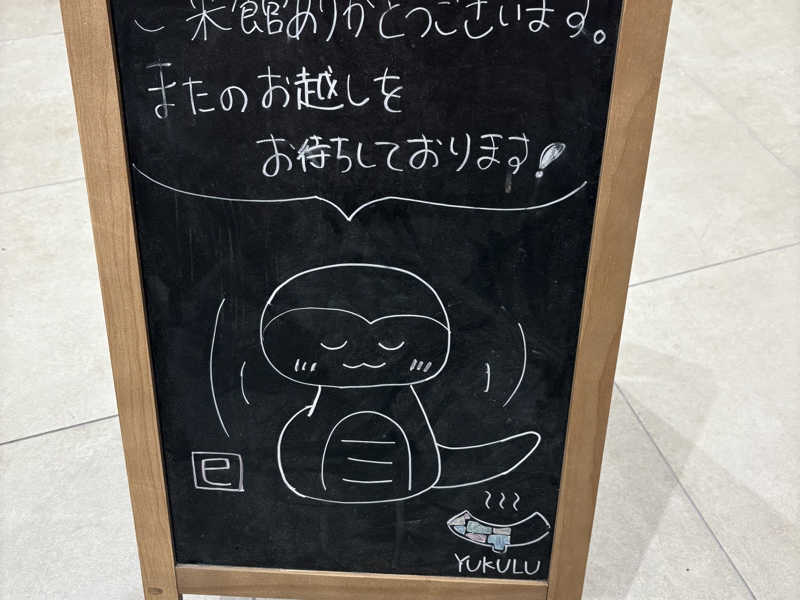 ご来館ありがとうございます。
またのお越しを
お待ちしております!
e
YUKULU